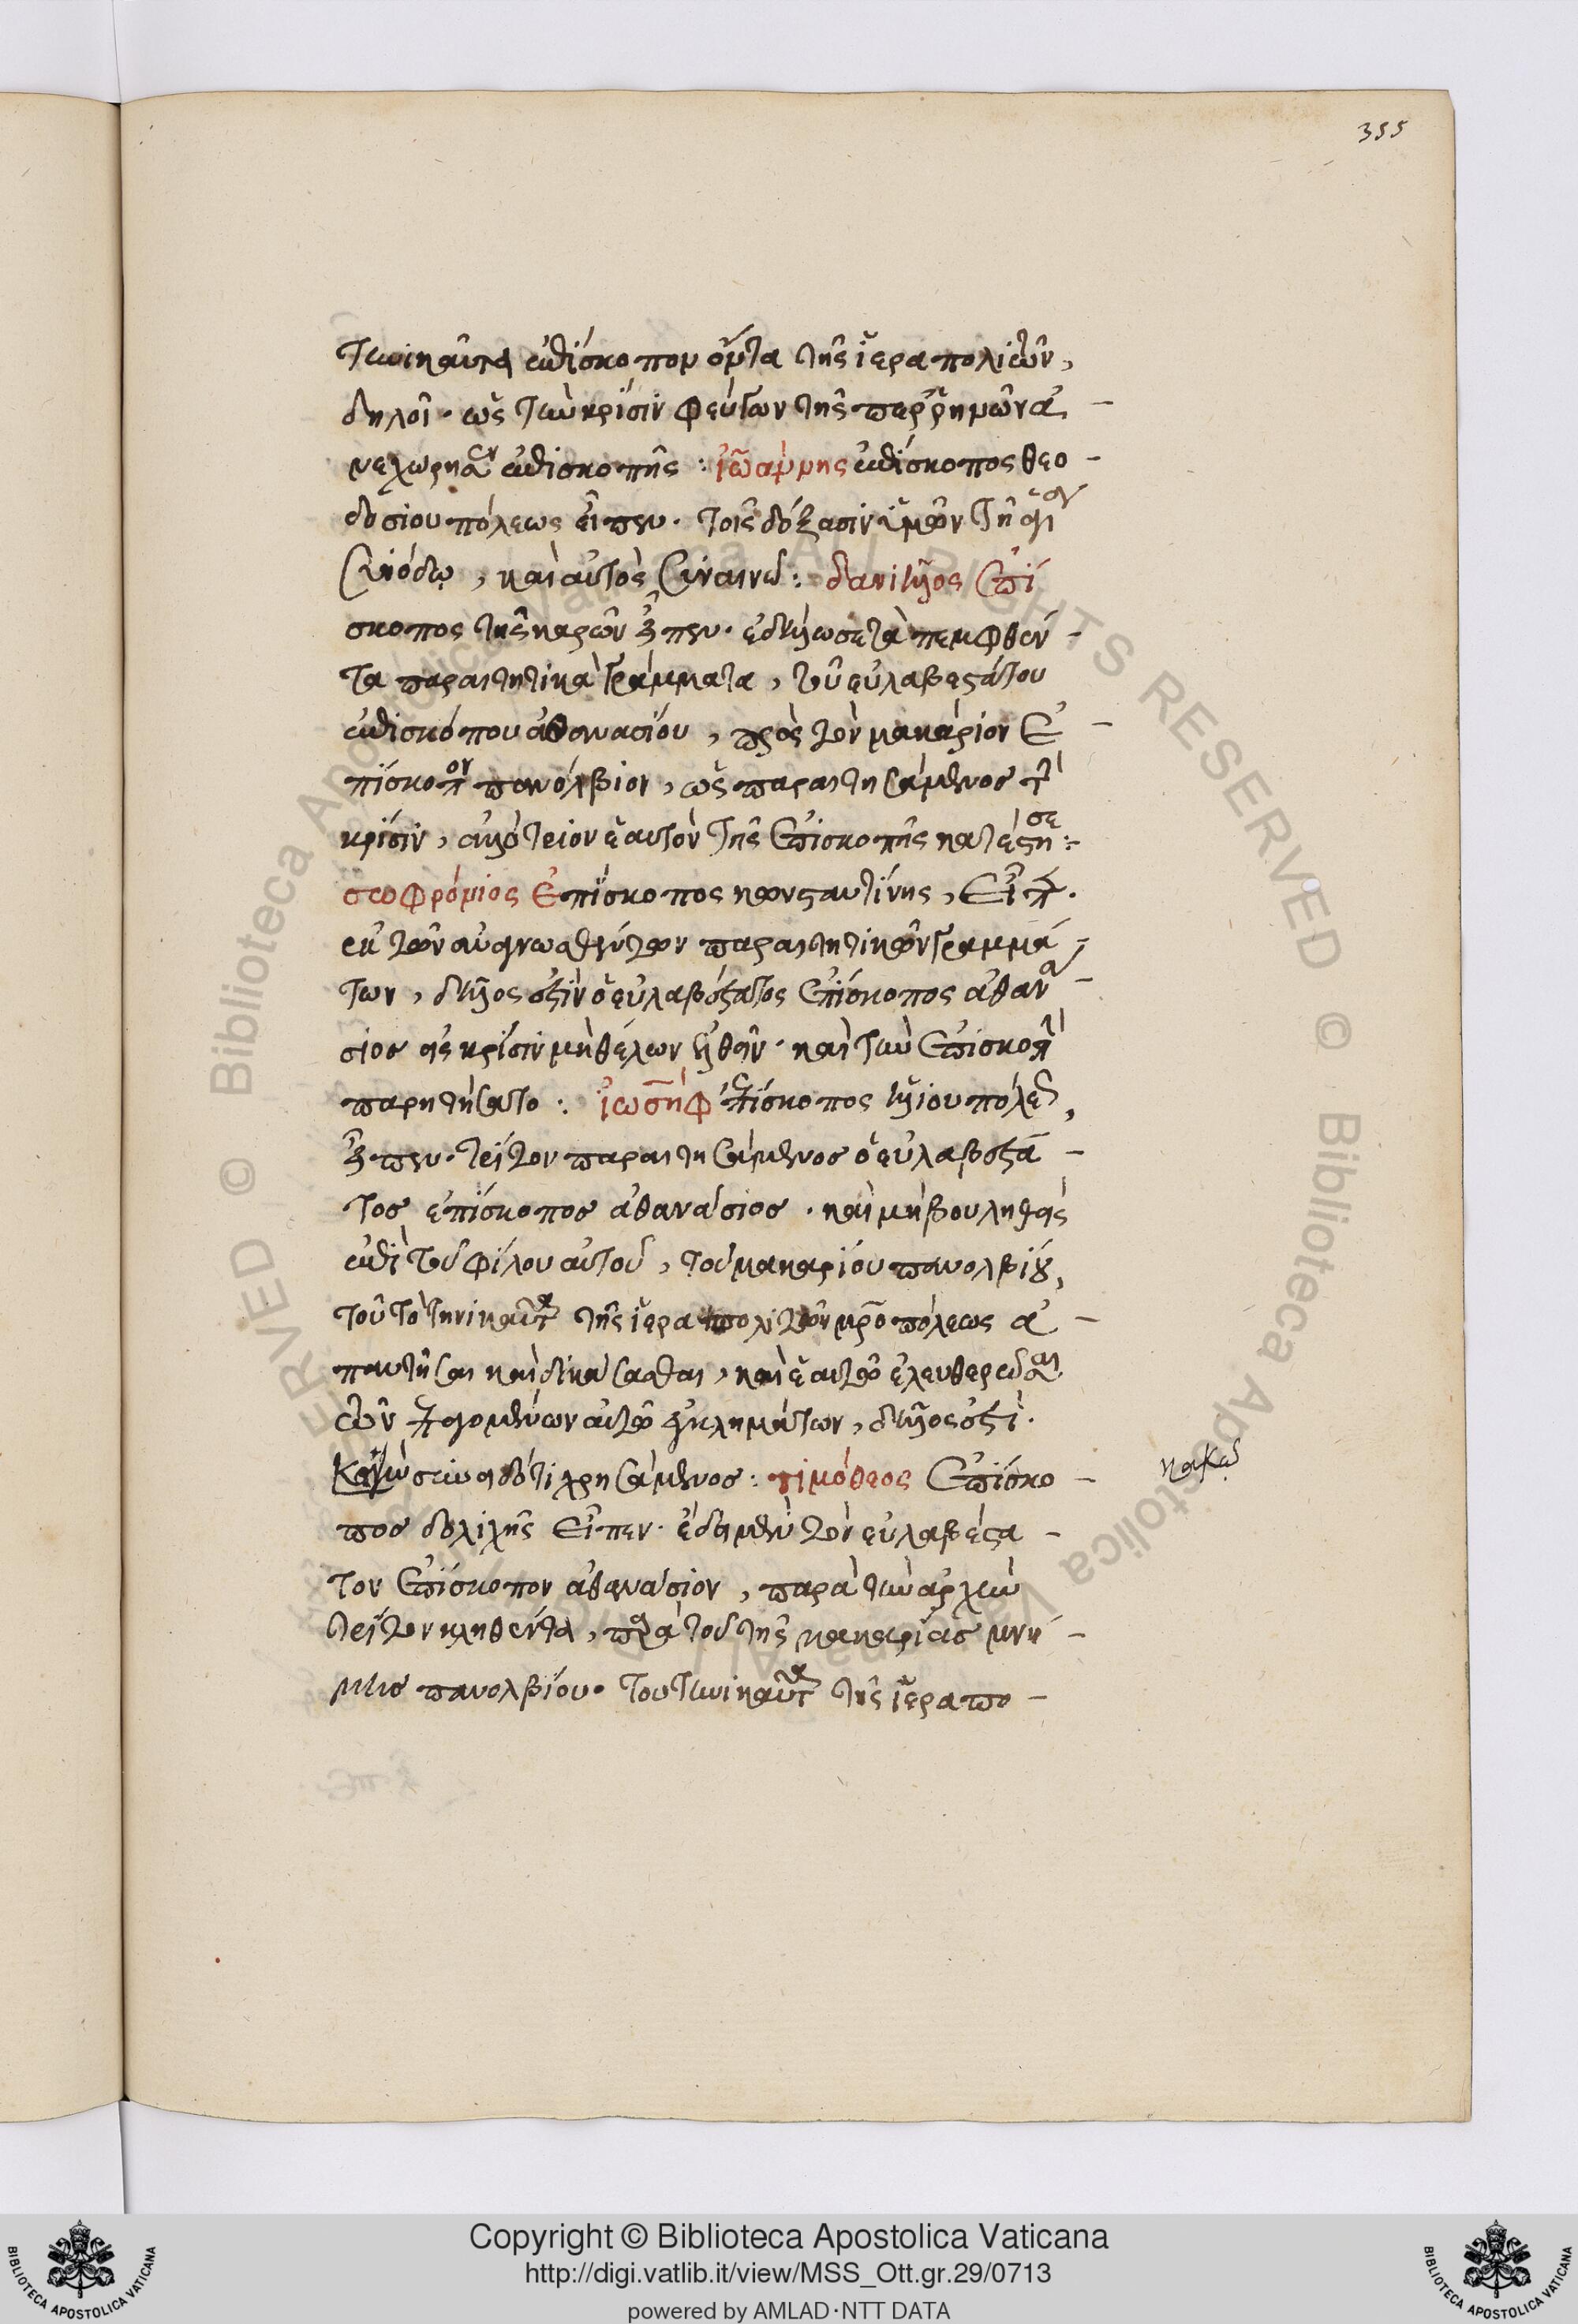 355
τηνικαῦτα ἐπίσκοπον ὄντα τῆς ἱεραπολιτῶν,
δηλοῖ· ὡς τὴν κρίσιν φεύγων τῆς περρημῶν ἀ-
νεχώρησεν ἐπισκοπῆς: ἰωάννης ἐπίσκοπος θεο-
δοσίου πόλεως εἶπεν. τοῖς δόξασιν ὑμῶν τῇ ἁγί
συνόδῳ, καὶ αὐτὸς συναινῶ: δανιῆλος ἐπί
σκοπος τῆς καρῶν εἶπεν. ἐδήλωσε τὰ πεμφθέν-
τα παραιτητικὰ γράμματα, τοῦ εὐλαβεστάτου
ἐπισκόπου ἀθανασίου, πρὸς τὸν μακάριον ἐ-
πίσκοπον πανόλβιον, ὡς παραιτησάμενος τὴν
κρίσιν, ἀλλότριον ἑαυτὸν τῆς ἐπισκοπῆς κατέστησε:
σωφρόνιος ἐπίσκοπος κωνσταντίνης, εἶπεν.
ἐκ τῶν ἀναγνωσθέντων παραιτητικῶν γραμμά-
των, δῆλος ἐστὶν ὁ εὐλαβέστατος ἐπίσκοπος ἀθανα-
σιος εἰς κρίσιν μὴ θέλων ἐλθεῖν. καὶ τὴν ἐπισκοπὴν
παρητήσατο: ἰωσὴφ ἐπίσκοπος ἡλίου πόλεως,
εἶπεν. τρίτον παραιτησάμενος ὁ εὐλαβεστά-
τος ἐπίσκοπος ἀθανάσιος. καὶ μὴ βουληθεὶς
ἐπὶ τοῦ φίλου αὐτοῦ, τοῦ μακαρίου πανολβίου,
τοῦ τοτηνικαῦτα τῆς ἱεραπολιτῶν μητροπόλεως ἀ-
παντῆσαι καὶ δικάσασθαι, καὶ ἑαυτὸν ἐλευθερῶσαι
τῶν ἐπαγομένων αὐτῷ ἐγκλημάτων, δῆλος ἐστὶ.
κακῷ συνειδότι χρησάμενος: τιμόθεος ἐπίσκο-
πος δολιχῆς εἶπεν. ἔδει μὲν τὸν εὐλαβέστα-
τον ἐπίσκοπον ἀθανάσιον, παρὰ τὴν ἀρχὴν
τρίτον κληθέντα, παρὰ τοῦ τῆς μακαρίας μνή-
μης πανολβίου. τοῦ τηνικαῦτα τῆς ἱεραπο-
κακῷ
Copyright © Biblioteca Apostolica Vaticana
http://digi.vatlib.it/view/MSS_Ott.gr.29/0713
powered by AMLAD·NTT DATA